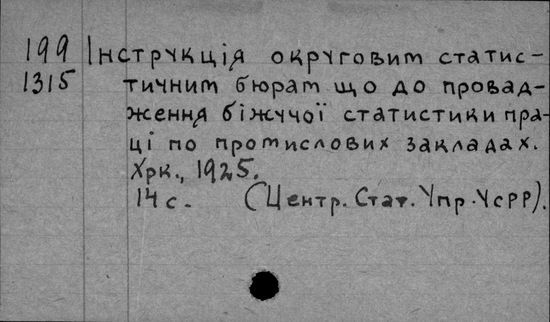 199 Інструкція округовим статис-
1315 тичним бюрам що до провад-
ження біжучої статистики пра-
ці по промислових закладах.
Хрк., 1925.
14 с. (Центр. Стат. Упр. УсРР).